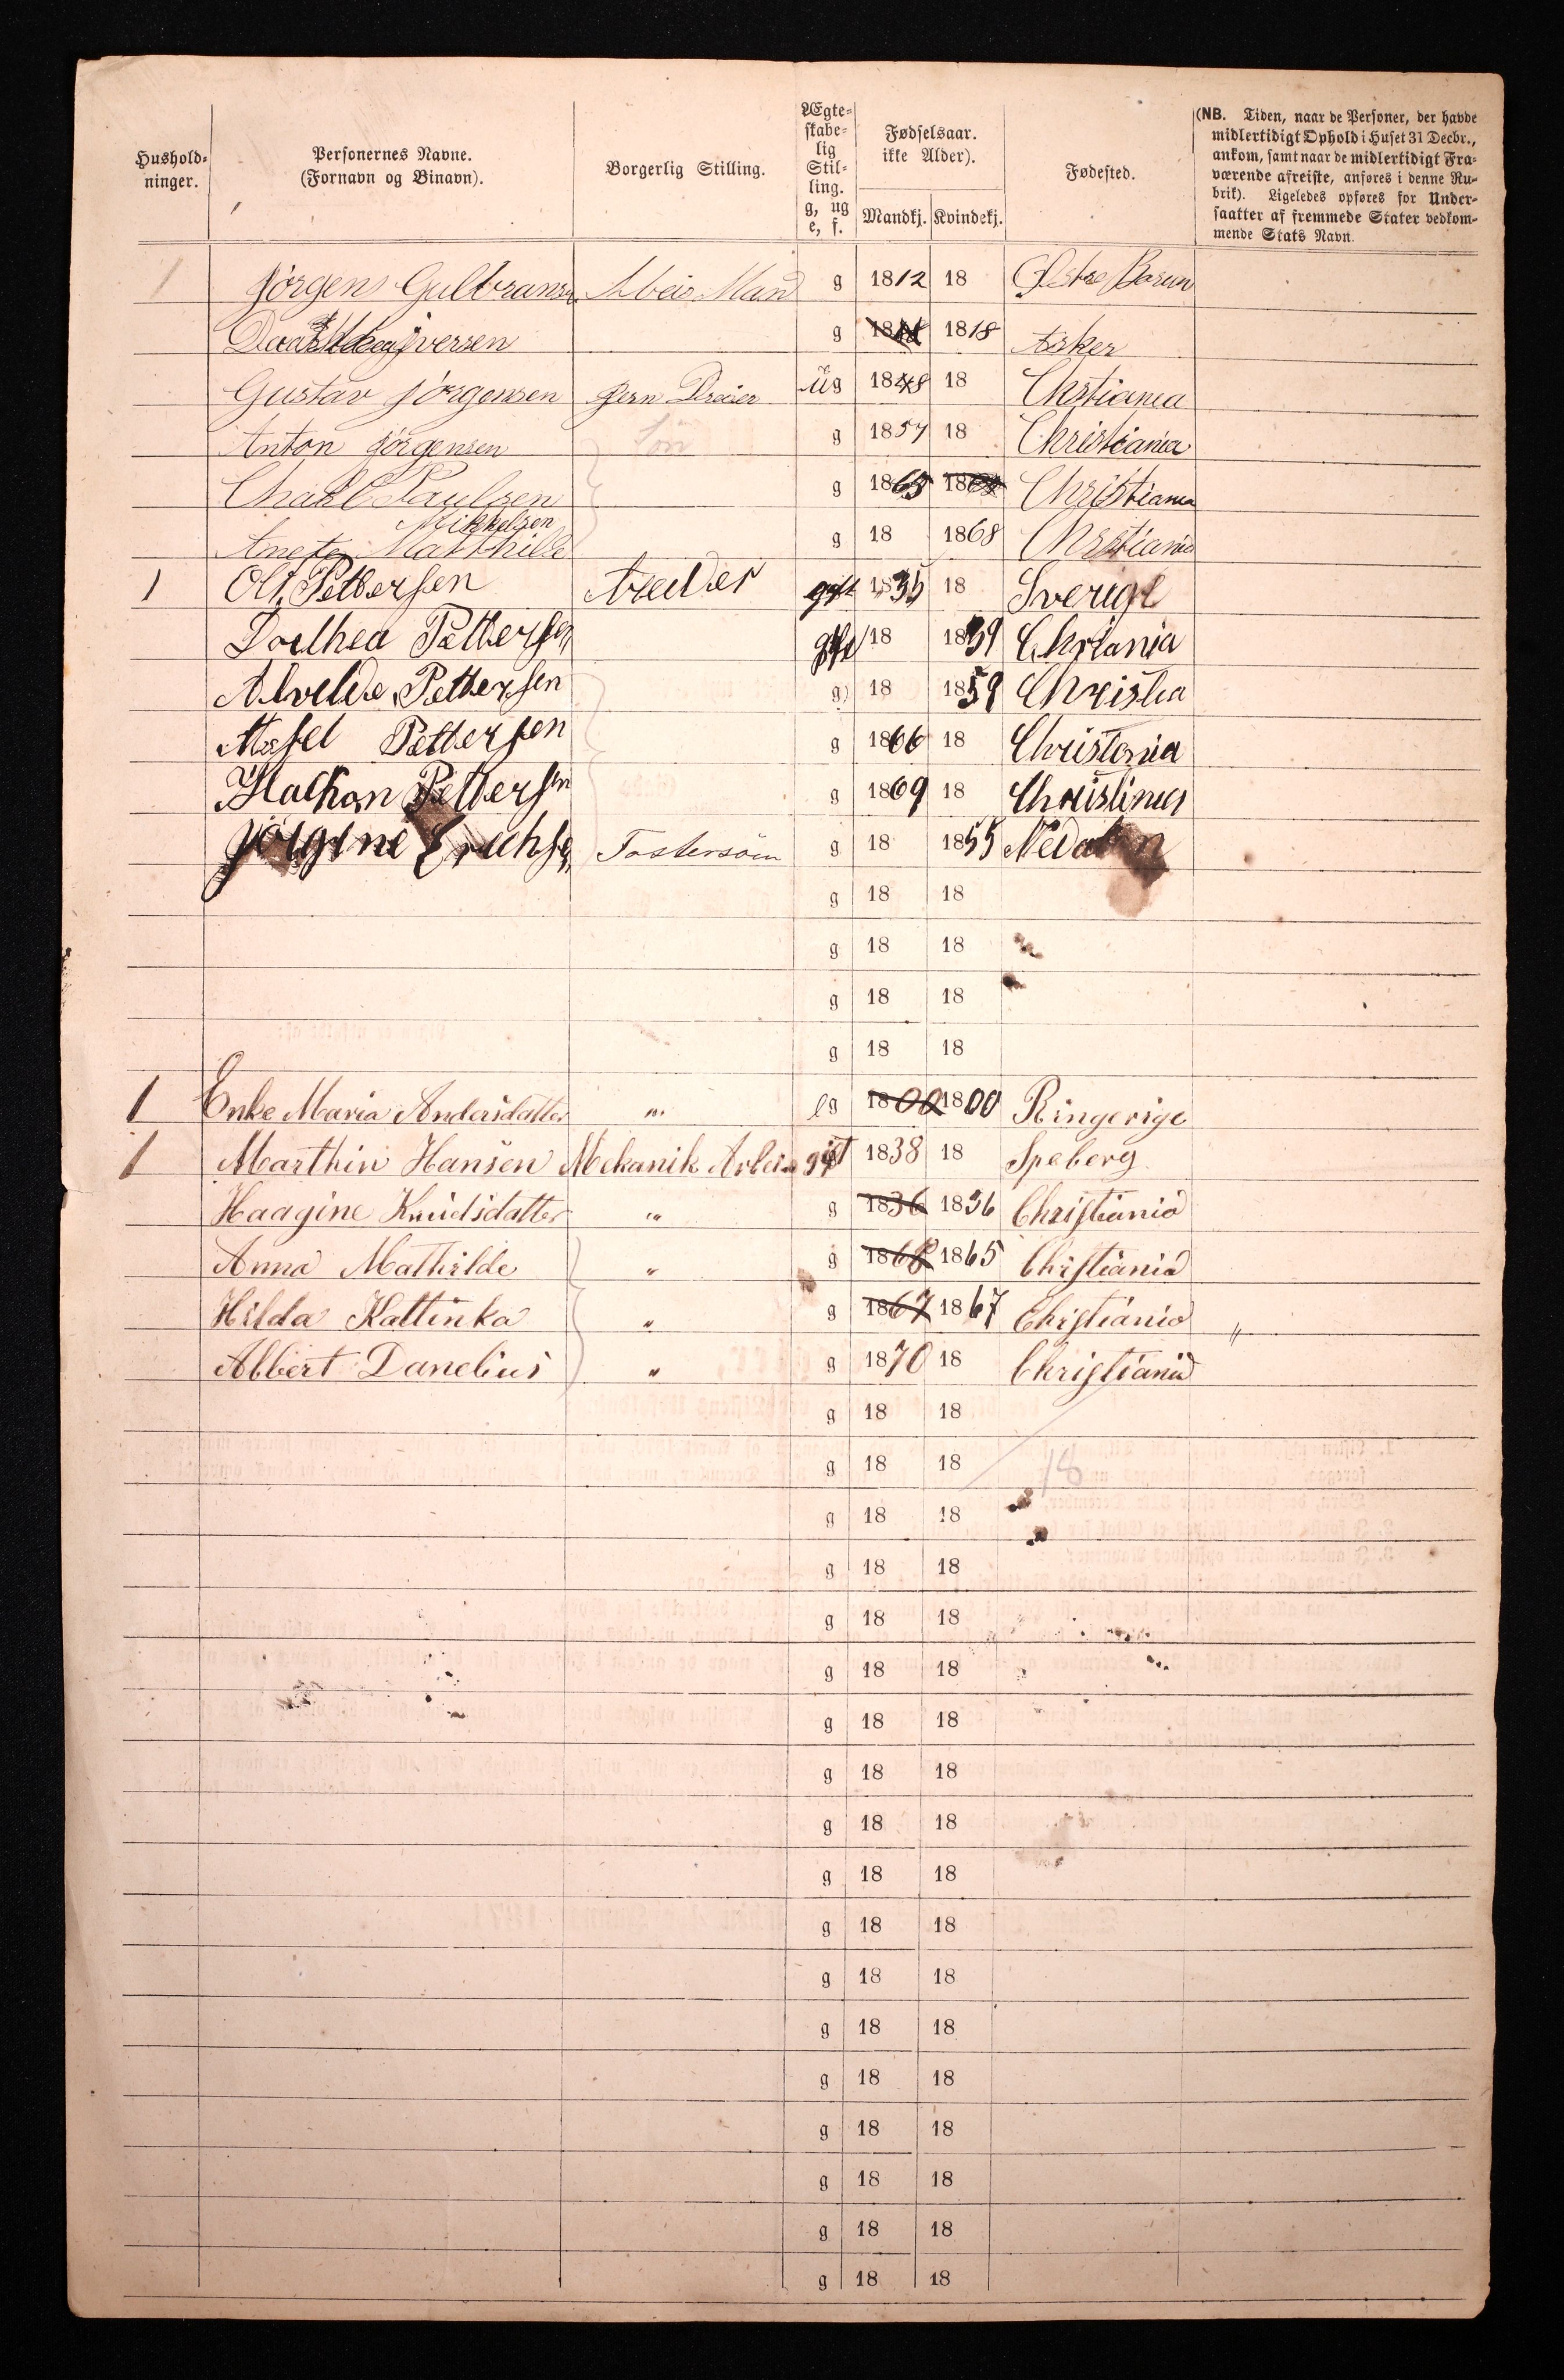 Hushold-
ninger.
Personernes Navne.
(Fornavn og Binavn).
Borgerlig Stilling.
Ægte-
skabe-
lig
Stil-
ling.
g, ug
e, f.
Fødselsaar.
ikke Alder).
Mandkj. Kvindekj.
Fødested.
(NB. Tiden, naar de Personer, der havde
midlertidigt Ophold i Huset 31 Decbr.,
ankom, samt naar de midlertidigt Fra-
værende afreiste, anføres i denne Ru-
brik). Ligeledes opføres for Under-
saatter af fremmede Stater vedkom-
mende Stats Navn.
1 Jørgens Gulbransen Abeis Mand g 1812 18 Østre Barum
Iversen g 1818 Asker
Gustav Jørgensen Jern Dreier ug 1848 18 Chstiania
Anton Jørgensen Søn g 1857 18 Christiania
Charl Paulsen g 1863 Christiania
Mikkelsen
Anete Matthilde g 18 1868 Chrstiania
1 Ole Pettersen Areider gift 1835 18 Sverige
Dorthea Pettersen gift 18 1839 Chrtania
Alvelde Pettersen g 18 1859 Christia
Aksel Pettersen g 1866 18 Christania
Hackon Pettersen g 1869 18 Christinia
Jørgine Erichsen Tostersøn g 18 1855
g 18 18
g 18 18
g 18 18
g 18 18
1 Enke Maria Andersdatter " eg 1800 1800 Ringerige
1 Marthin Hansen Mekanik Arbeid gift 1838 18 Speberg
Haagine Knudsdatter " g 1836 1836 Christiania
Anna Mathilde " g 1868 1865 Christiania
Hilda Kattinka " g 1867 1867 Christiania "
Albert Danelius " g 1870 18 Christiania
g 18 18
g 18 18 18
g 18 18
g 18 18
g 18 18
g 18 18
g 18 18
g 18 18
g 18 18
g 18 18
g 18 18
g 18 18
g 18 18
g 18 18
g 18 18
g 18 18
g 18 18
g 18 18